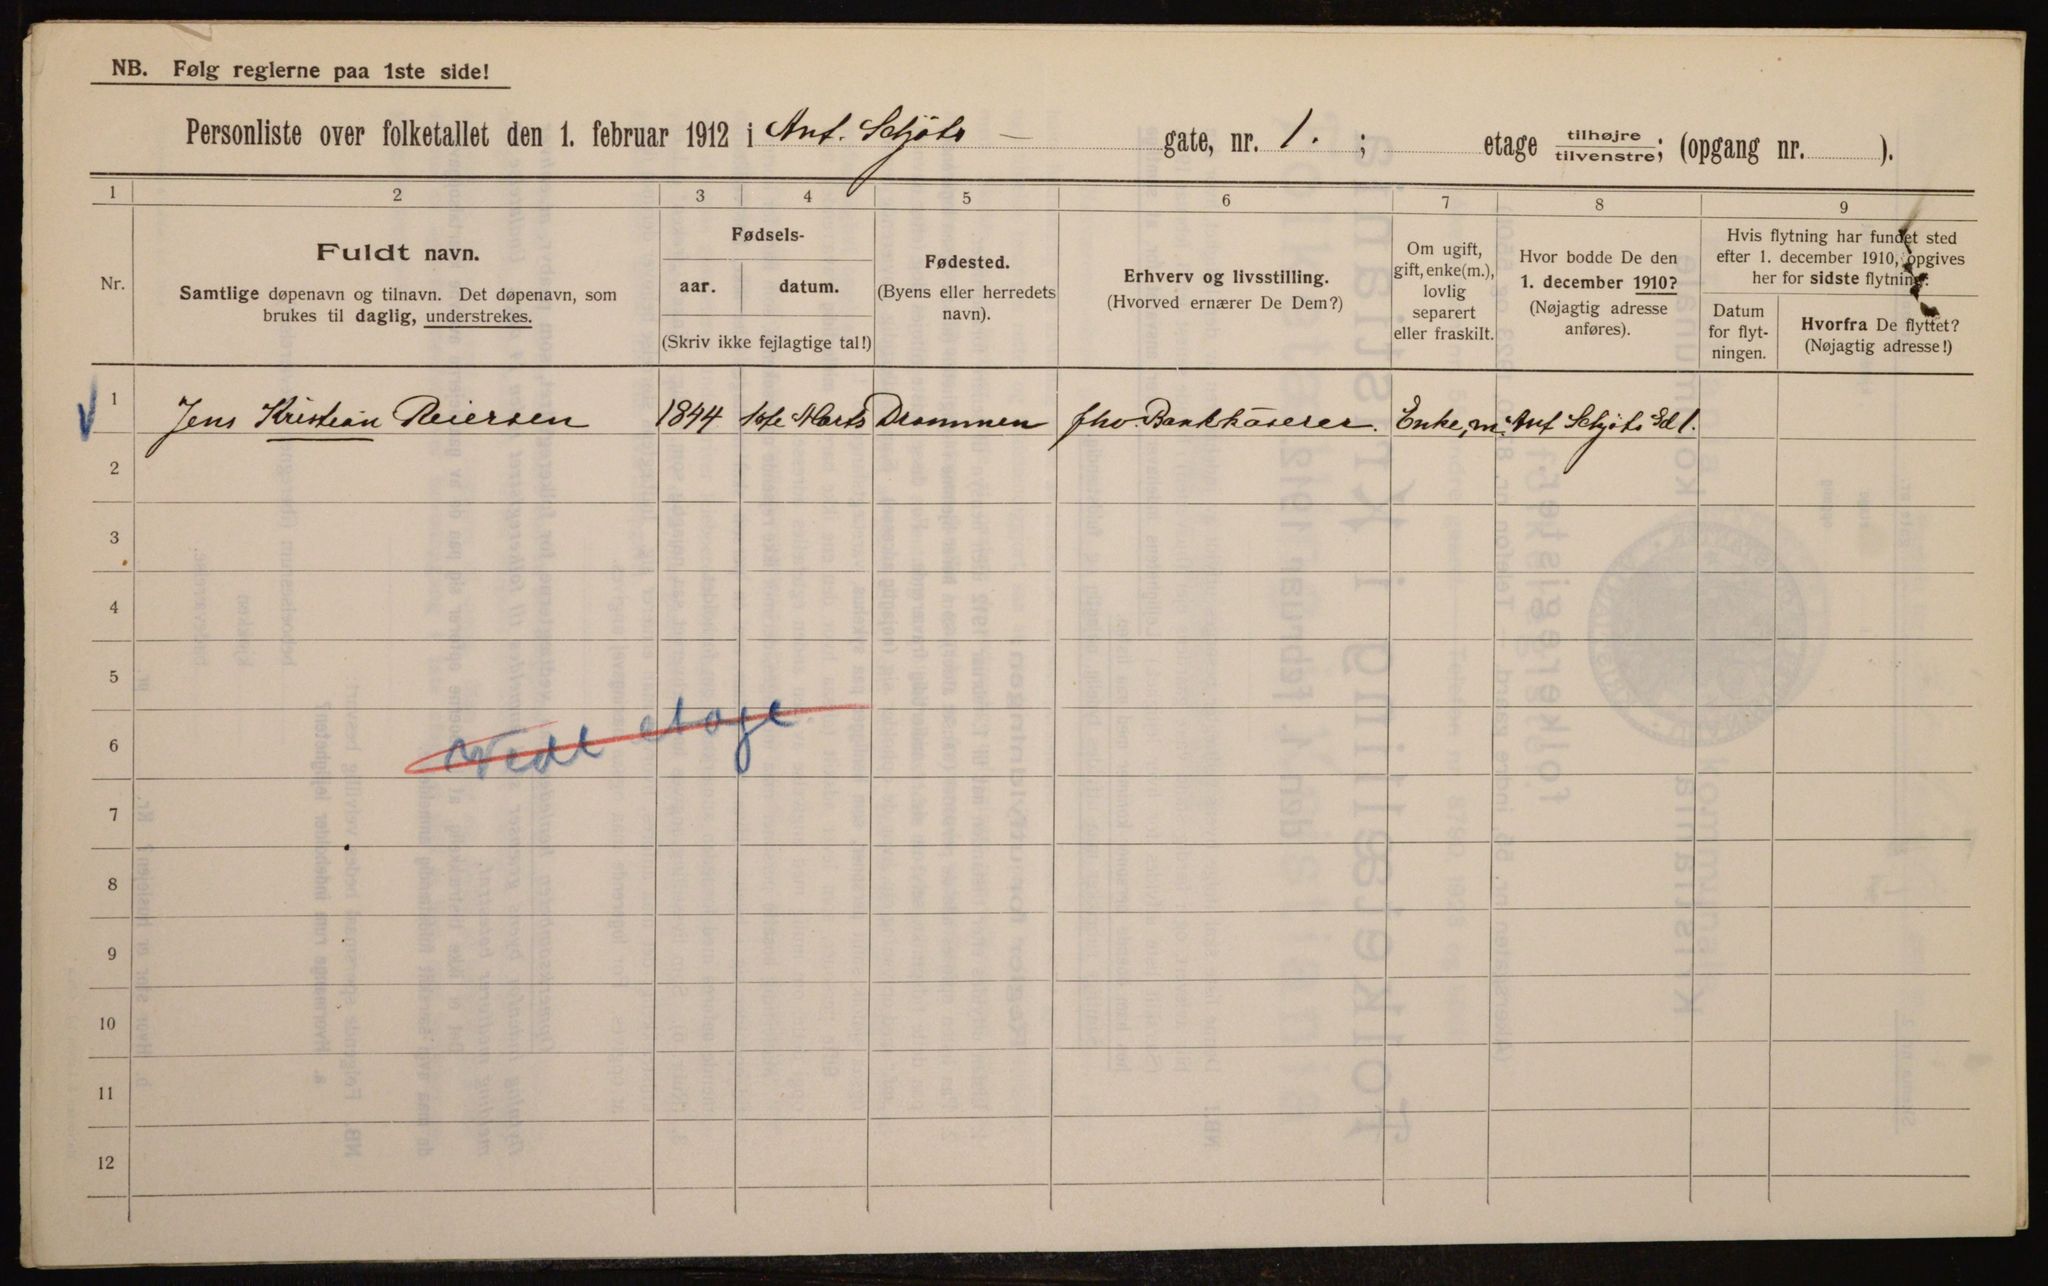 NB. Følg reglerne paa 1ste side!
Personliste over folketallet den 1. februar 1912 i Ant. Schjøts — gate, nr. 1. ; etage tilhøjre/tilvenstre; (opgang nr. ).
1 2 3 4 5 6 7 8 9
Nr.
Fuldt navn.
Samtlige døpenavn og tilnavn. Det døpenavn, som
brukes til daglig, understrekes.
Fødsels-
aar. datum.
(Skriv ikke fejlagtige tal!)
Fødested.
(Byens eller herredets
navn).
Erhverv og livsstilling.
(Hvorved ernærer De Dem?)
Om ugift,
gift, enke(m.),
lovlig
separert
eller fraskilt.
Hvor bodde De den
1. december 1910?
(Nøjagtig adresse
anføres).
Hvis flytning har fundet sted
efter 1. december 1910, opgives
her for sidste flytning:
Datum
for flyt-
ningen.
Hvorfra De flyttet?
(Nøjagtig adresse!)
1 Jens Kristian Reiersen 1844 Marts Drammen fhv. Bankkasserer. Enke, m. Ant Schjøts Gd 1.
2
3
4
5
6
etage
7
8
9
10
11
12